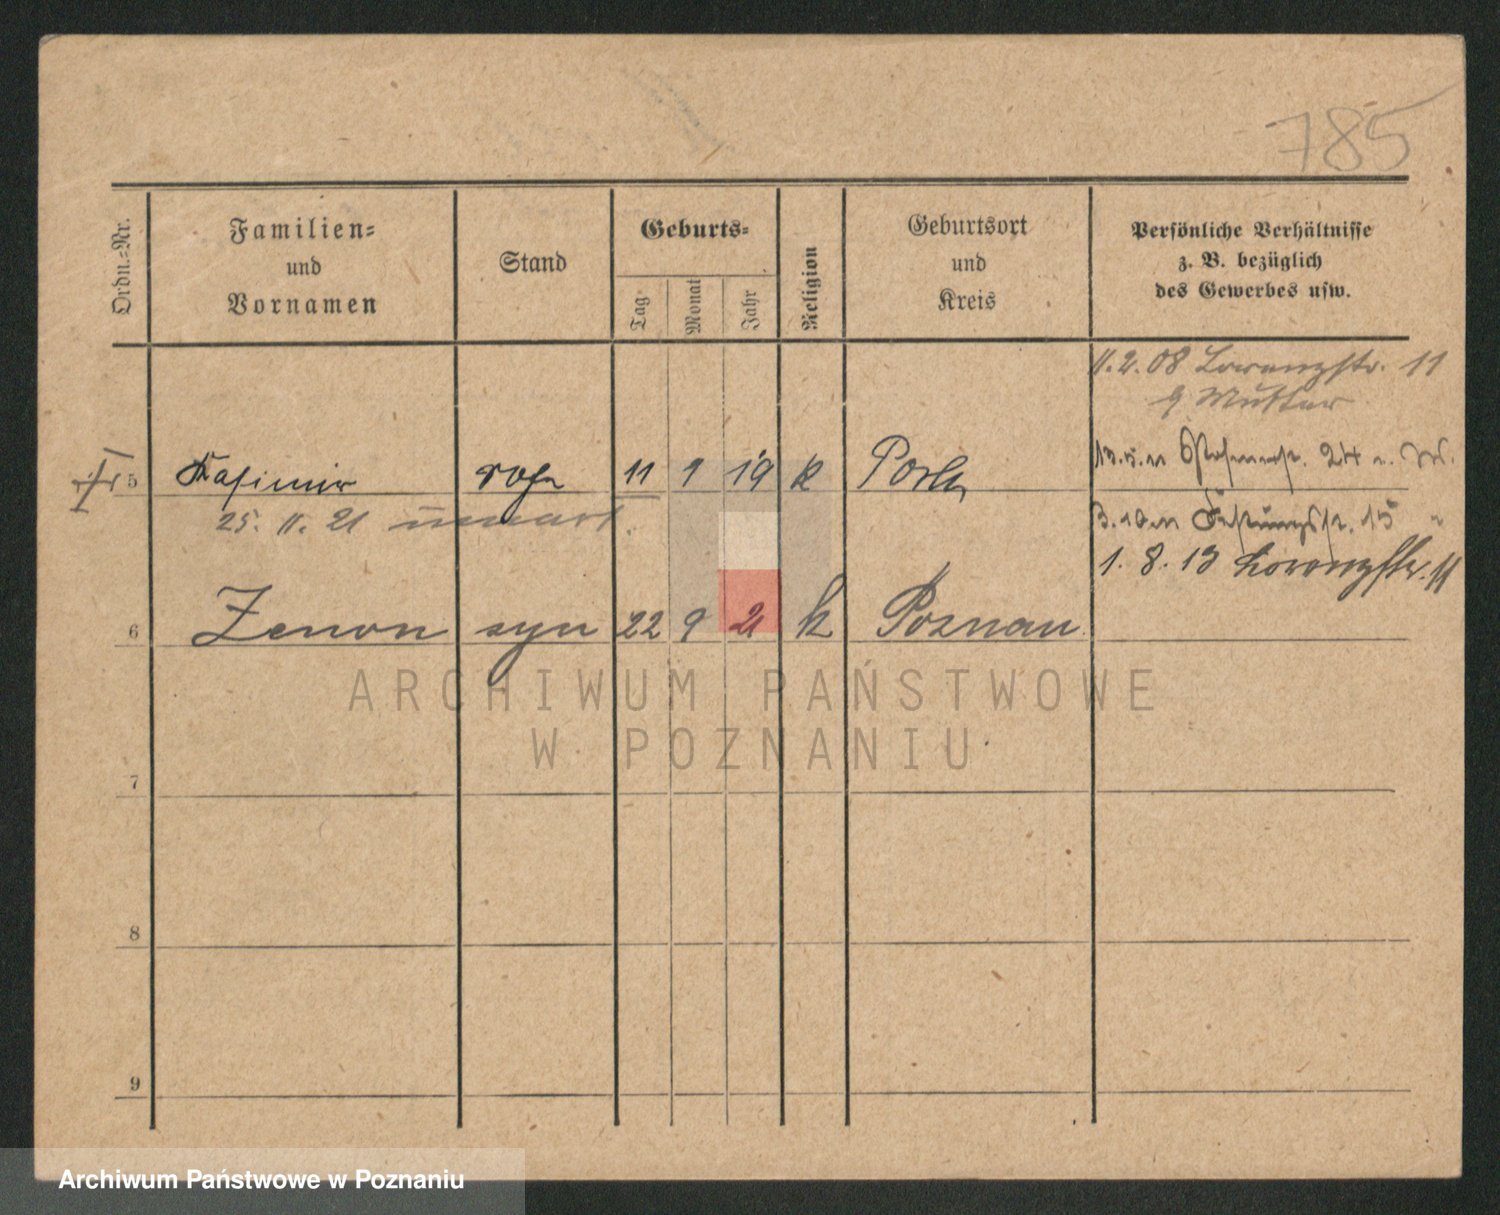 785
Ordn.-Nr.
Familien-
und
Vornamen
Stand
Geburts-
Tag
Monat
Jahr
Religion
Geburtsort
und
Kreis
Persönliche Verhältnisse
z. B. bezüglich
des Gewerbes usw.
11.2.08 Lorenzstr. 11
Mutter
5 Kasimir 11 9 19 k Posen
13.5.11 24
25. 11. 21 umart.
3.10.11 Festungsstr. 15 "
1. 8. 13 Lorenzstr. 11
6 Zenon syn 22 9 21 k Poznan
ARCHIWUM PAŃSTWOWE
W POZNANIU
7
8
9
Archiwum Państwowe w Poznaniu